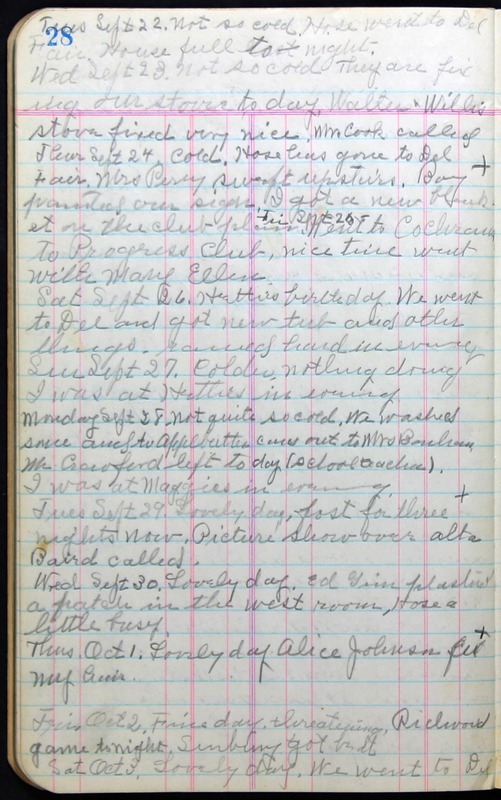 28
Tues Sept 22. Not so cold, Hose went to Del
Fair House full to night.
Wed Sept 23. Not so cold They are fix
ing our stove to day, Walter Willis
stove fixed very nice. Mr Cook called
Thur Sept 24, Cold, Hose has gone to Del +
Fair, Mrs Percy swept upstairs. Boy
painted our sign. I got a new blank
et on the club plan. Fri Sept 25 Went to Cochrans
to Progress Club, nice time went
with Mary Ellen
Sat Sept 26. Hetties birthday We went
to Del and got new tub and other
things. rained hard in evening
Sun Sept 27. Colder, nothing doing
I was at Hetties in evening
Monday Sept 28. Not quite so cold, We washed
some and to Applebutter out to Mrs Bonham
Mr Crawford left to day (school teacher).
I was at Maggies in evening +
Tues Sept 29 Lovely day, fost for three
nights now. Picture show over alta
Baird called.
Wed Sept 30. Lovely day. Ed plastered
a patch in the west room, Hose a
little busy.
Thus. Oct 1. Lovely day Alice Johnson fix +
my hair.
Frie Oct 2, Fine day. threatening, Richwood
game tonight, Sunbury got beat
Sat Oct 3, Lovely day. We went to Del